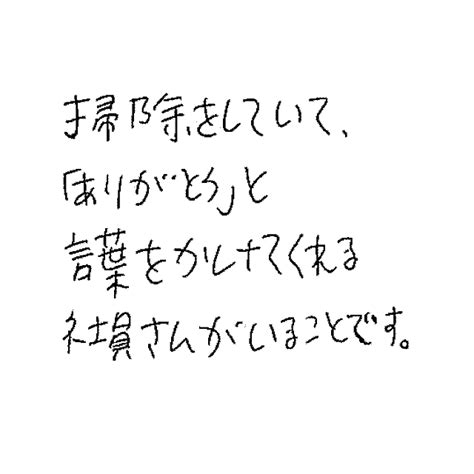 掃除をしていて、
「ありがとう」と
言葉をかけてくれる
社員さんがいることです。